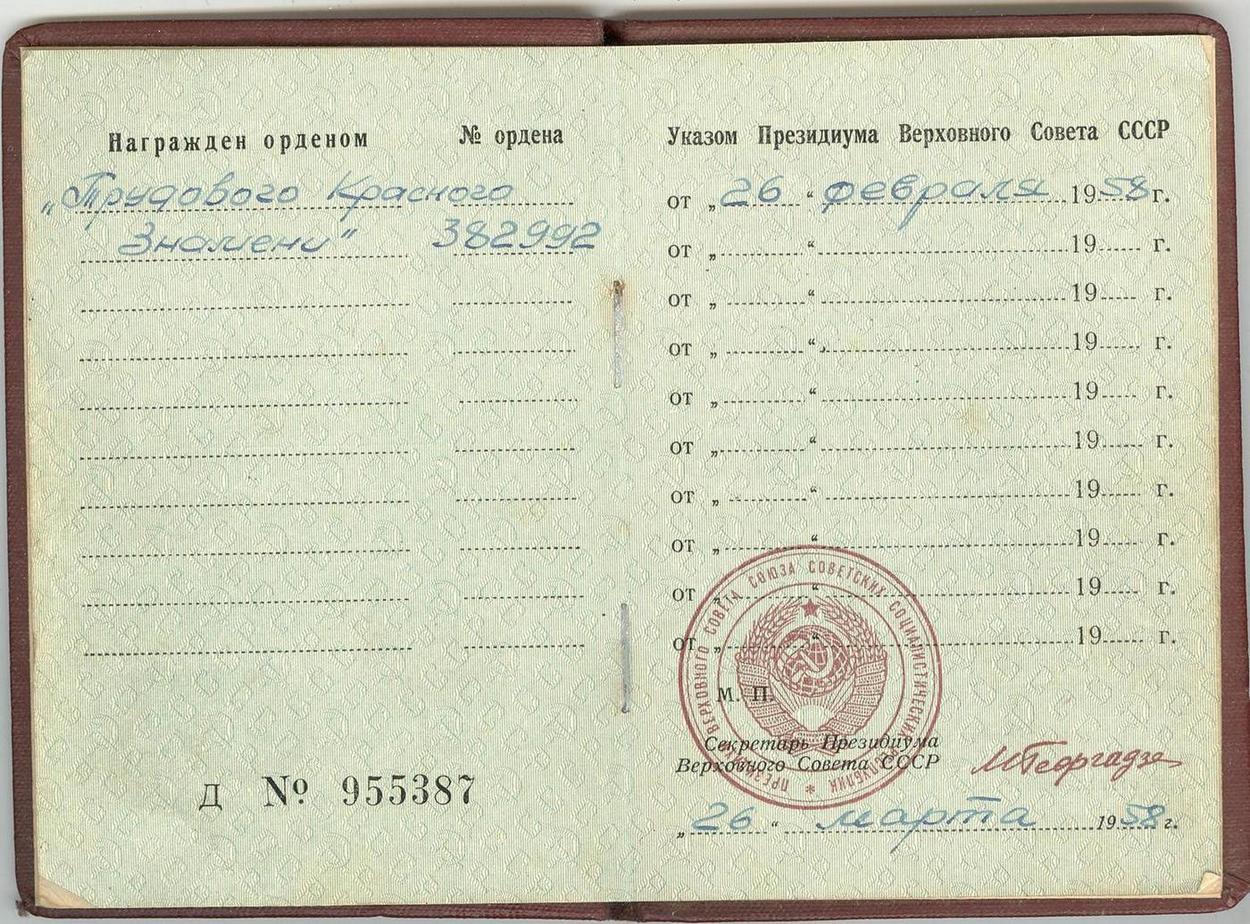 Награжден орденом № ордена
„Трудового Красного
Знамени“ 382992
Д № 955387
Указом Президиума Верховного Совета СССР
от „26“ февраля 1958 г.
от „ “ 19 г.
от „ “ 19 г.
от „ “ 19 г.
от „ “ 19 г.
от „ “ 19 г.
от „ “ 19 г.
от „ “ 19 г.
от „ “ 19 г.
от „ “ 19 г.
ПРЕЗИДИУМ ВЕРХОВНОГО СОВЕТА СОЮЗА СОВЕТСКИХ СОЦИАЛИСТИЧЕСКИХ РЕСПУБЛИК *
М. П.
Секретарь Президиума
Верховного Совета СССР МГеоргадзе
„26“ марта 1958 г.